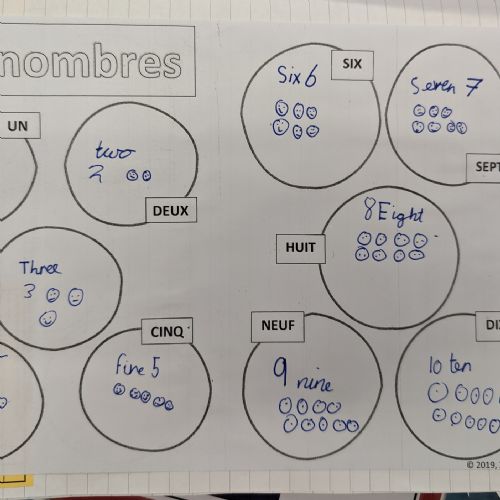 nombres
UN
two
2
DEUX
Three
3
CINQ
five 5
SIX
Six 6
Seven 7
SEPT
8 Eight
HUIT
NEUF
9 nine
10 ten
© 2019,